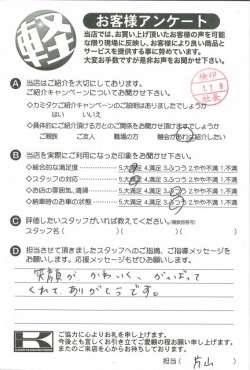 軽
お客様アンケート
当店では、お買い上げ頂いたお客様の声を可能
な限り現場に反映し、お客様により良い商品と
サービスを提供する事に努めています。
大変お手数ですが是非お声をお聞かせ下さい。
検印
1.1.8
A 当店はご紹介を大切にしております。
ご紹介キャンペーンについてお聞かせ下さい。
<カミタケご紹介キャンペーンのご説明はありましたでしょうか
はい いいえ
◇具体的にご紹介頂ける方とのご関係をお聞かせ下さい
ご親族 ご友人 職場の方 機会があればご紹介したい
B 当店を実際にご利用になった印象をお聞かせ下さい。
◇総合的な満足度 5.大満足 4.満足 3.ふつう 2.やや不満 1.不満
◇スタッフの対応 5.大満足 4.満足 3.ふつう 2.やや不満 1.不満
◇お店の雰囲気、清掃 5.大満足 4.満足 3.ふつう 2.やや不満 1.不満
◇納車時のお車の状態 5.大満足 4.満足 3.ふつう 2.やや不満 1.不満
C 評価したいスタッフがいれば教えてください。(複数回答可)
スタッフ名( )( )( )
D 担当させて頂きましたスタッフへのご指摘、ご指導メッセージを
お願いします。応援メッセージもぜひお願いします。
笑顔が かわいく、がんばって
くれて ありがとうです。
K
ご協力に心よりお礼を申し上げます。
今後とも宜しくお引き立てご愛顧の程お願い申し上げます。
またのご来店を心からお待ちしております。
担当( 片山 )